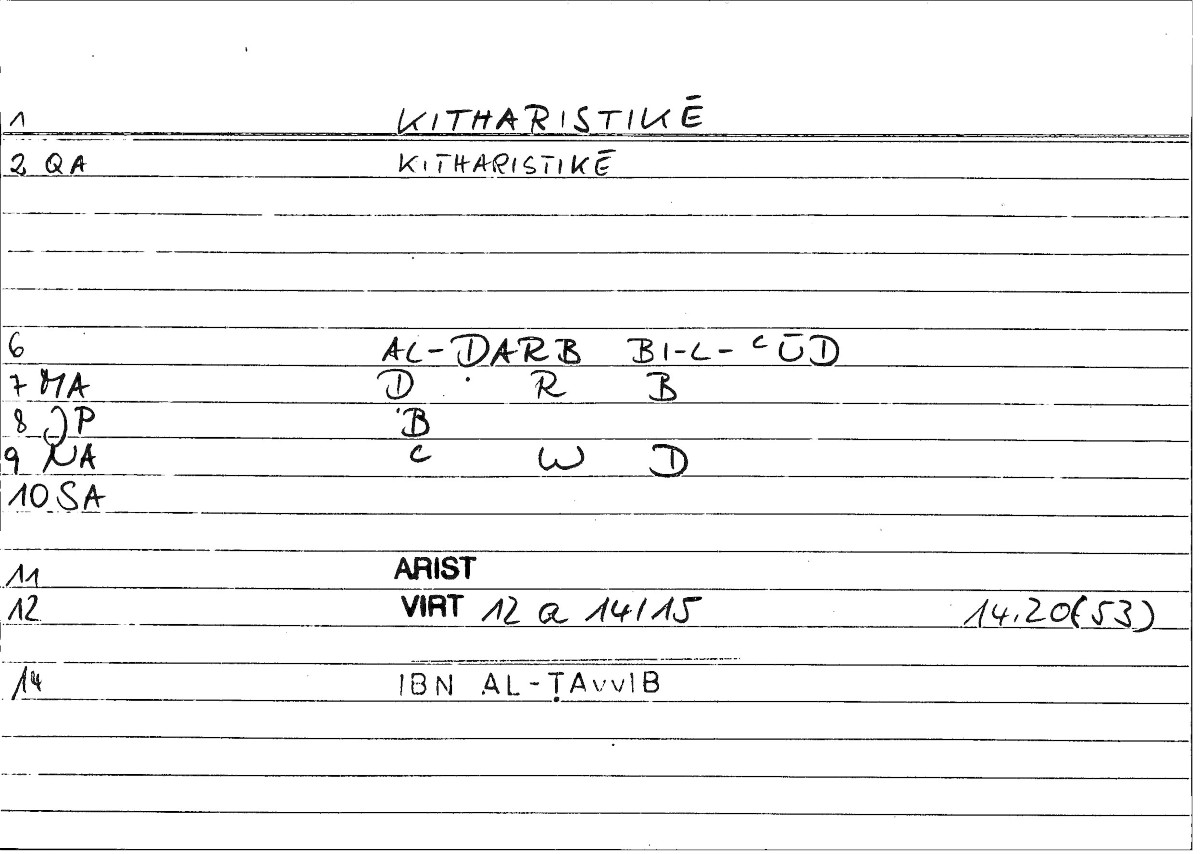 1 KITHARISTIKĒ
2 QA KITHARISTIKĒ
6 AL-DARB BI-L-ᶜŪD
7 MA Ḍ R B
8 JP B
9 NA ᶜ W D
10 SA
11 ARIST
12 VIRT 12 a 14/15 14.20(53)
14 IBN AL-ṬAYYIB